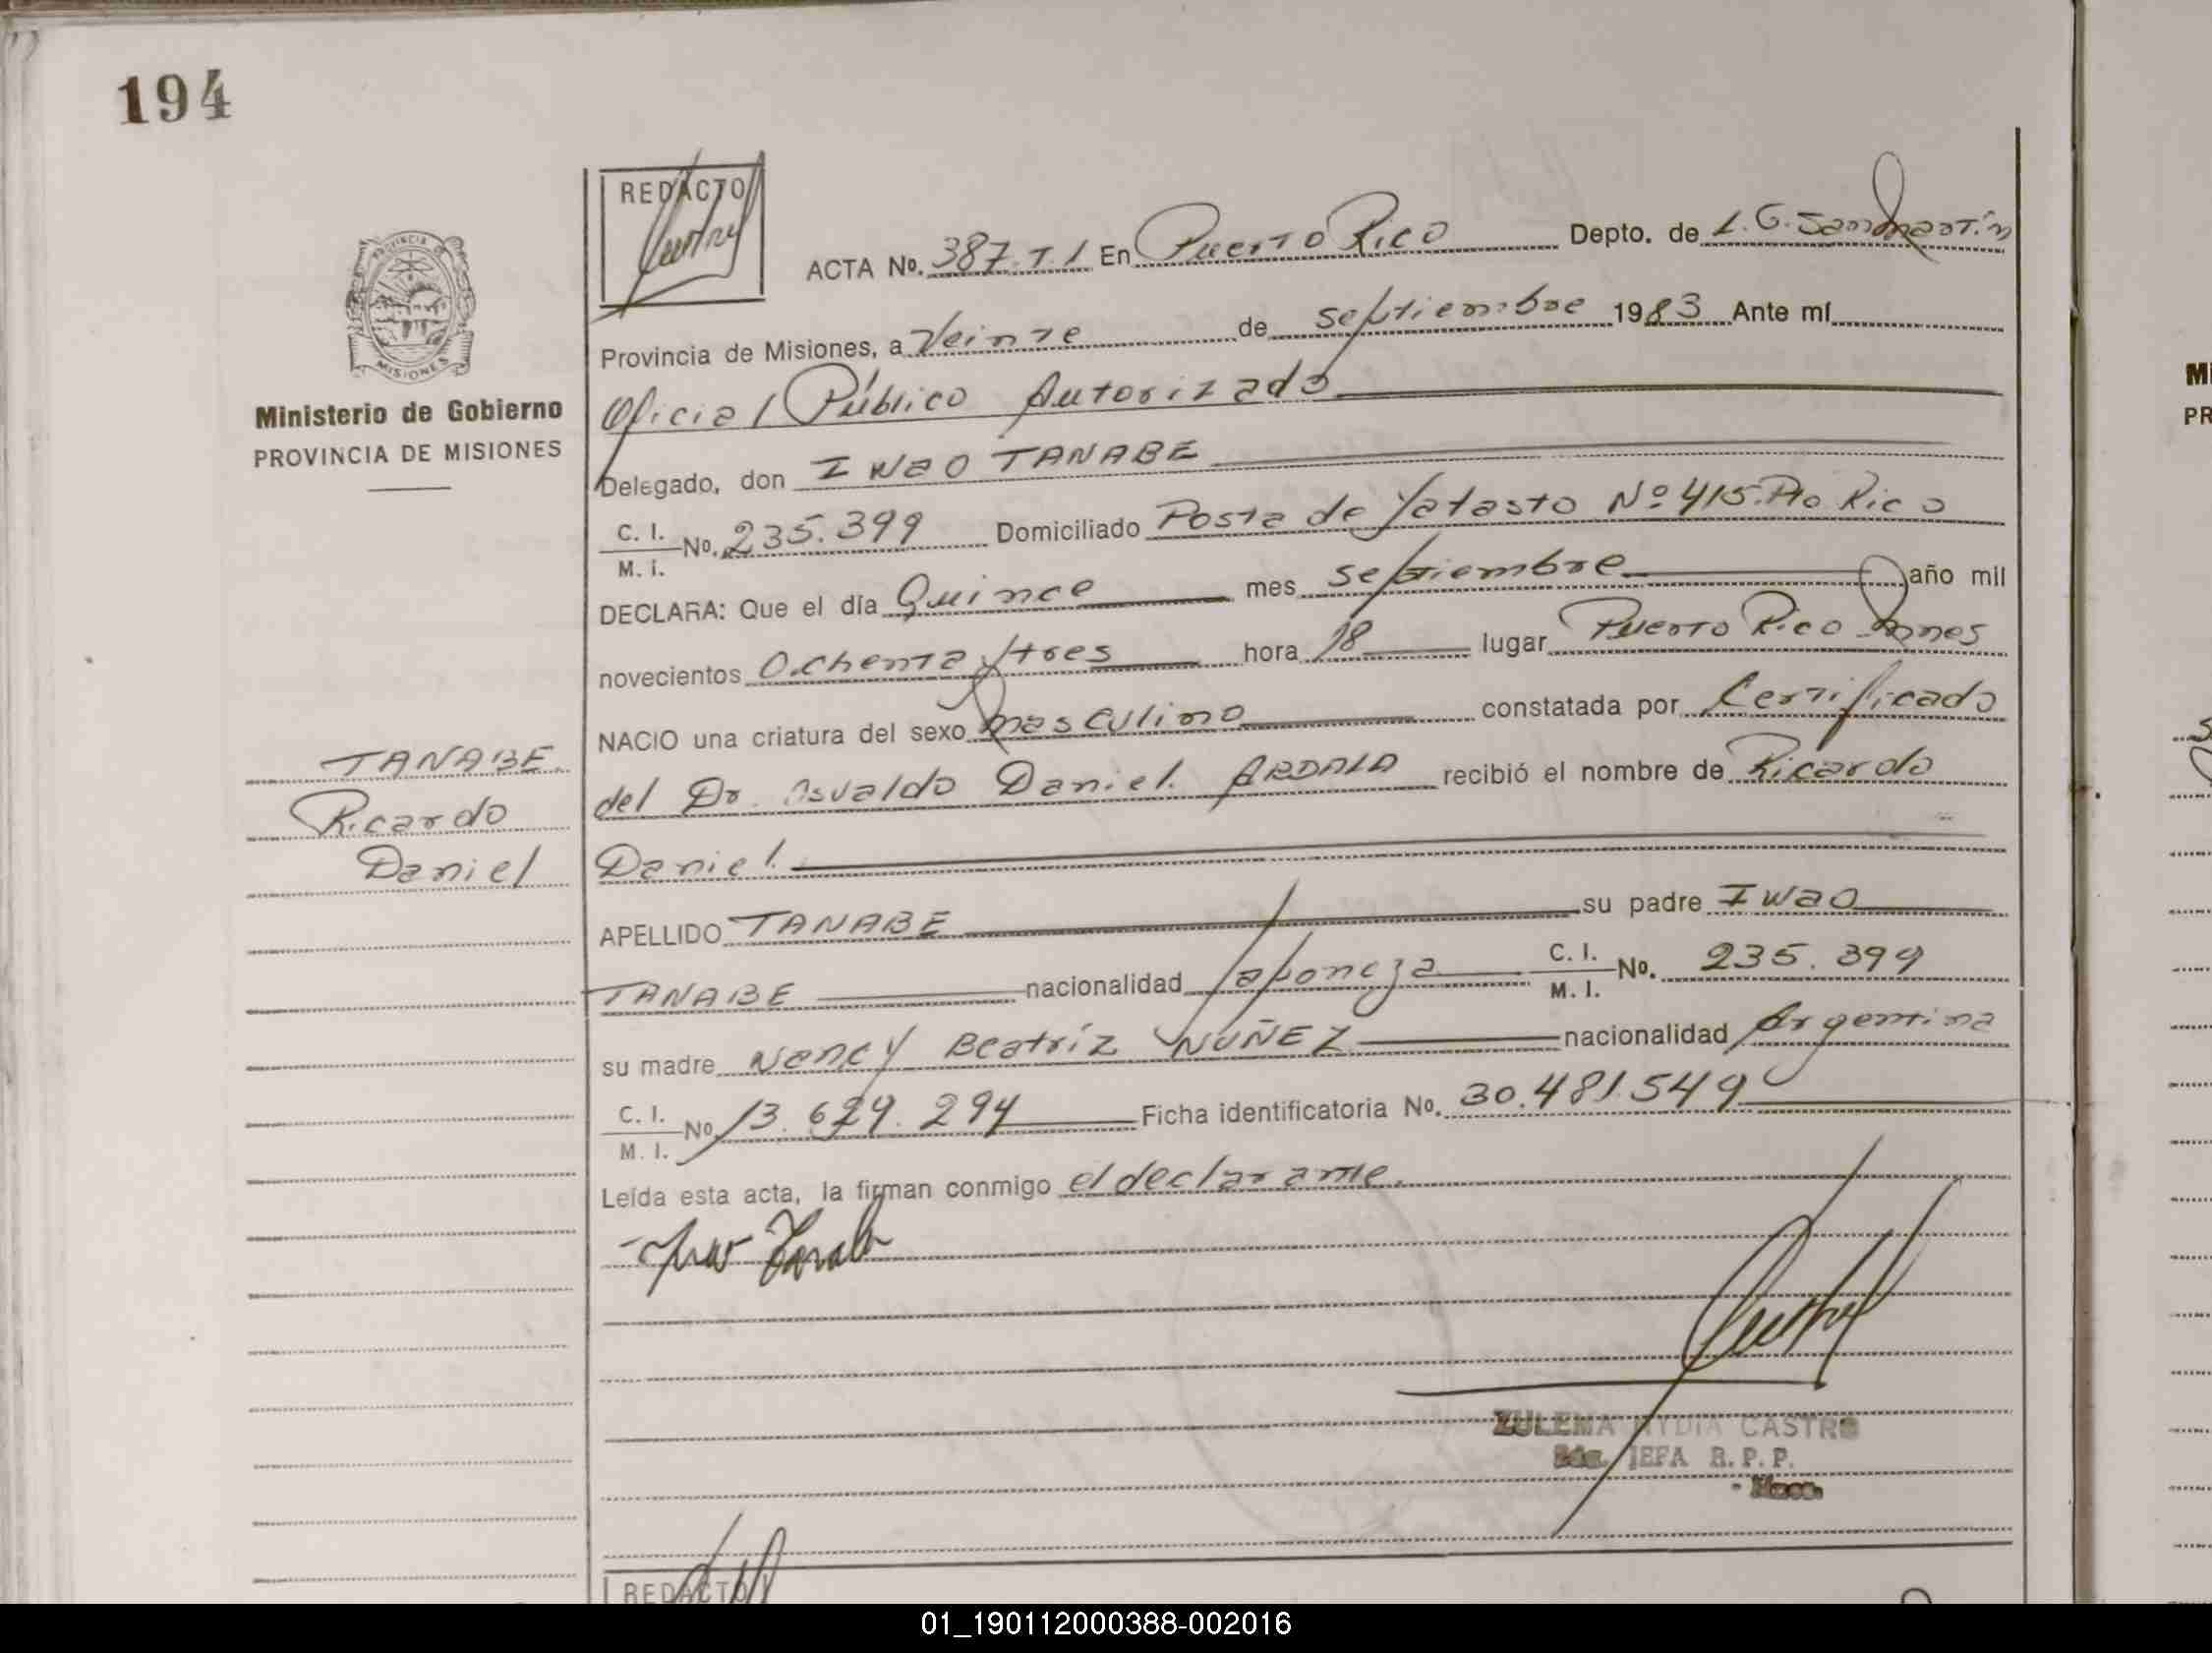 194
REDACTO
ACTA No. 387.T.1 En Puerto Rico Depto. de L.G. San Martín
Provincia de Misiones, a Veinte de septiembre 1983 Ante mí
Oficial Público Autorizado
Delegado, don Iwao TANABE
C. I. No. 235.399 Domiciliado Posta de Yatasto Nº 415. Pto Rico
M. I.
DECLARA: Que el día Quince mes septiembre año mil
novecientos Ochenta y tres hora 18 lugar Puerto Rico Mnes
NACIO una criatura del sexo masculino constatada por Certificado
del Dr. Osvaldo Daniel. recibió el nombre de Ricardo
Daniel.
APELLIDO TANABE su padre Iwao
TANABE nacionalidad Japoneza C. I. No. 235.399
M. I.
su madre Nancy Beatríz NÚÑEZ nacionalidad Argentina
C. I. No. 13.629.294 Ficha identificatoria No. 30.481.549
M. I.
Leída esta acta, la firman conmigo el declarante.
ZULEMA CASTRO
JEFA R. P. P.
Mnes.
PROVINCIA DE
MISIONES
Ministerio de Gobierno
PROVINCIA DE MISIONES
TANABE.
Ricardo
Daniel
REDACTO
Mi
PR
01_190112000388-002016